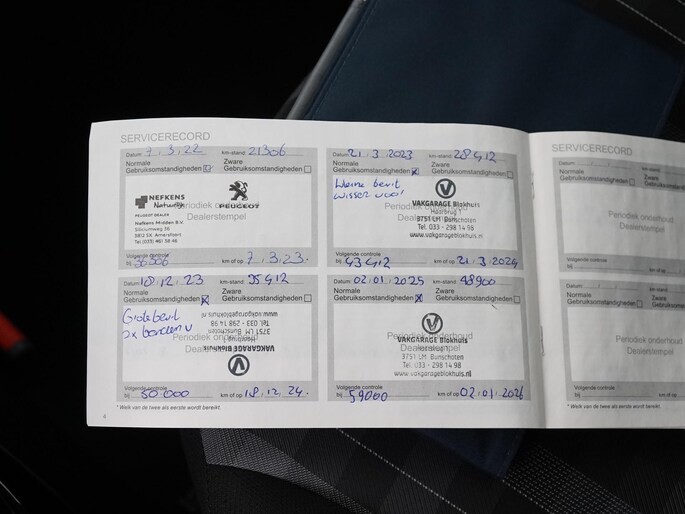 SERVICERECORD
Datum 7.3.22 km-stand 21306
Normale Gebruiksomstandigheden
Zware Gebruiksomstandigheden
NEFKENS
PEUGEOT
Periodiek onderhoud
Dealerstempel
PEUGEOT DEALER
Nefkens Midden B.V.
Tel (033) 461 38 46
Volgende controle
bij km of op 7.3.23.
Datum 21.3.2023 km-stand 28412
Normale Gebruiksomstandigheden
Zware Gebruiksomstandigheden
Kleine beurt
VAKGARAGE Blokhuis
Periodiek onderhoud
Dealerstempel
3751 LM Bunschoten
Tel. 033 - 298 14 98
www.vakgarageblokhuis.nl
Volgende controle
bij 43412 km of op 21.3.2024
Datum 18.12.23 km-stand 35412
Normale Gebruiksomstandigheden
Zware Gebruiksomstandigheden
Grote beurt
www.vakgarageblokhuis.nl
Tel. 033 - 298 14 98
3751 LM Bunschoten
Periodiek onderhoud
Dealerstempel
VAKGARAGE Blokhuis
Volgende controle
bij 50.000 km of op 18.12.24.
Datum 02.01.2025 km-stand 48900
Normale Gebruiksomstandigheden
Zware Gebruiksomstandigheden
Periodiek onderhoud
VAKGARAGE Blokhuis
Dealerstempel
3751 LM Bunschoten
Tel. 033 - 298 14 98
www.vakgarageblokhuis.nl
Volgende controle
bij 59000 km of op 02.01.2026
* Welk van de twee als eerste wordt bereikt.
4
SERVICERECORD
Datum
Normale Gebruiksomstandigheden
Zware
Periodiek onderhoud
Dealerstempel
Volgende controle
bij km of op
Datum
Normale Gebruiksomstandigheden
Zware
Periodiek onderhoud
Dealerstempel
Volgende controle
bij km of op
* Welk van de twee als eerste wordt bereikt.